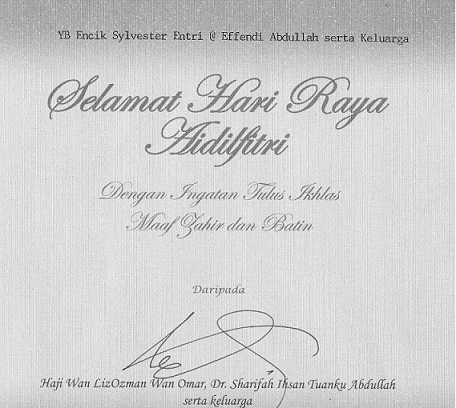 YB Encik Sylvester Entri @ Effendi Abdullah serta Keluarga
Selamat Hari Raya
Aidilfitri
Dengan Ingatan Tulus Ikhlas
Maaf Zahir dan Batin
Daripada
Haji Wan LizOzman Wan Omar, Dr. Sharifah Ihsan Tuanku Abdullah
serta keluarga